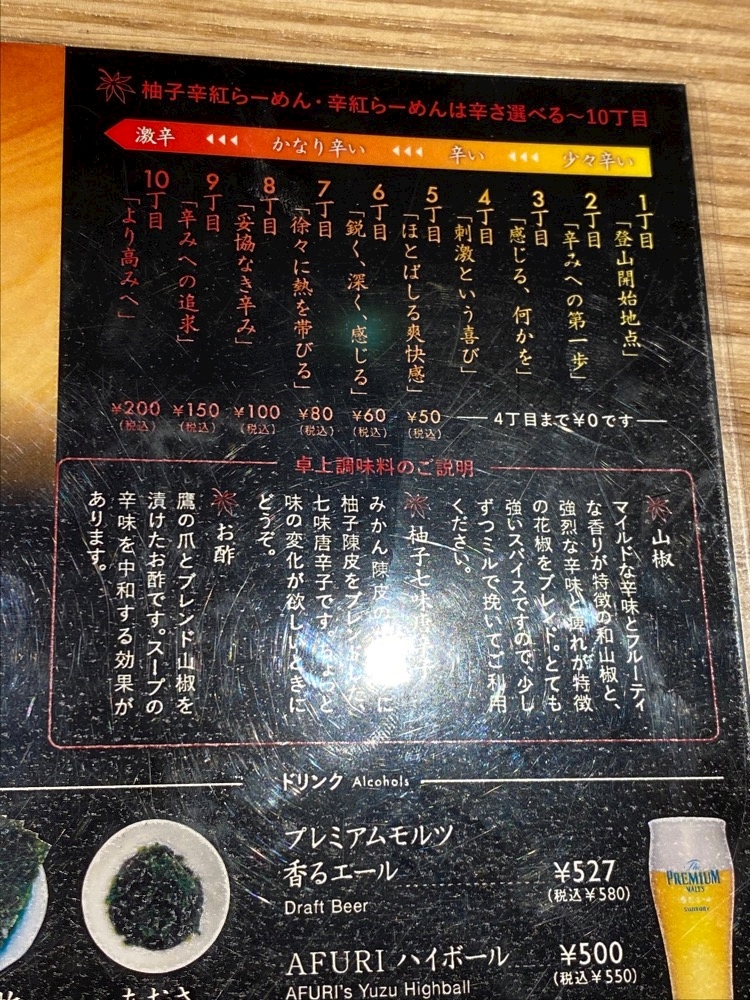 柚子辛紅らーめん・辛紅らーめんは辛さ選べる〜10丁目
激辛 かなり辛い 辛い 少々辛い
1丁目
「登山開始地点」
2丁目
「辛みへの第一歩」
3丁目
「感じる、何かを」
4丁目
「刺激という喜び」
5丁目
「ほとばしる爽快感」
6丁目
「鋭く、深く、感じる」
7丁目
「徐々に熱を帯びる」
8丁目
「妥協なき辛み」
9丁目
「辛みへの追求」
10丁目
「より高みへ」
4丁目まで¥0です
¥50
(税込)
¥60
(税込)
¥80
(税込)
¥100
(税込)
¥150
(税込)
¥200
(税込)
卓上調味料のご説明
山椒
マイルドな辛味とフルーティ
な香りが特徴の和山椒と、
強烈な辛味と痺れが特徴
の花椒をブレンド。とても
強いスパイスですので、少し
ずつミルで挽いてご利用
ください。
柚子七味
みかん陳皮の に
柚子陳皮をブレンドした、
七味唐辛子です。ちょっと
味の変化が欲しいときに
どうぞ。
お酢
鷹の爪とブレンド山椒を
漬けたお酢です。スープの
辛味を中和する効果が
あります。
ドリンク Alcohols
プレミアムモルツ
香るエール
Draft Beer
¥527
(税込¥580)
AFURI ハイボール
AFURI's Yuzu Highball
¥500
(税込¥550)
The
PREMIUM
MALT'S
SUNTORY
あおさ